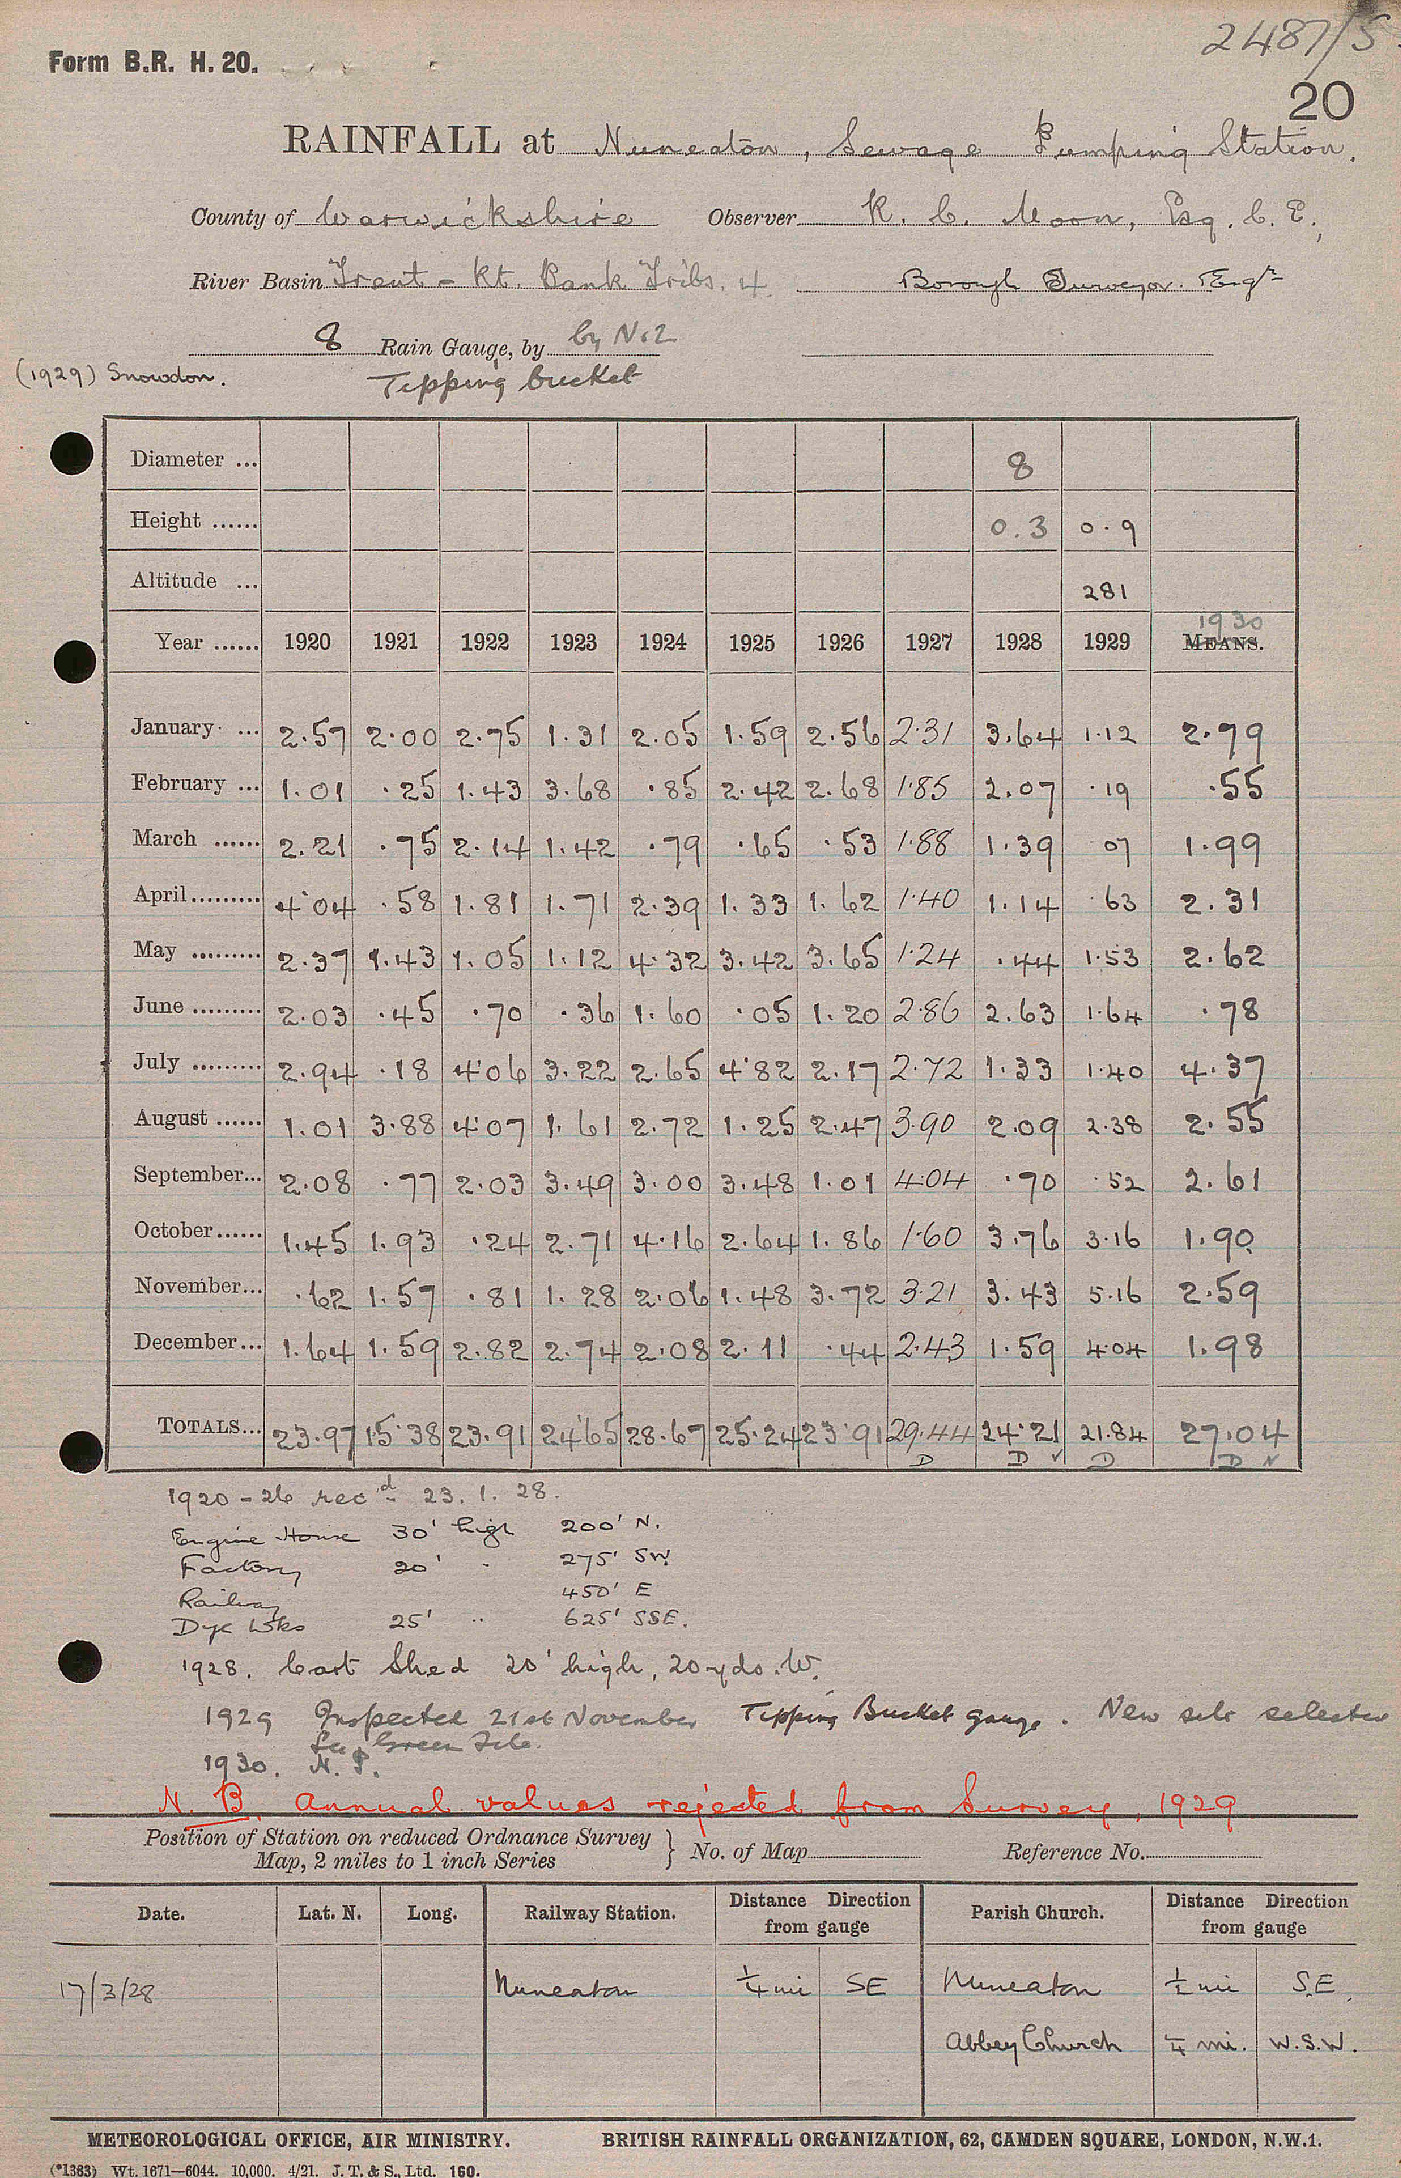 2487/5
Form B.R. H. 20.
20
RAINFALL at Nuneaton, Sewage Pumping Station.
County of Warwickshire Observer R. C. Moon, Esq. C. E.,
River Basin Trent - Rt. Bank Tribs. 4. Borough Surveyor. Engr
8 Rain Gauge, by by No 2
(1929) Snowdon. Tipping bucket
Diameter ... 8
Height ...... 0.3 0.9
Altitude ... 281
1930
Year ...... 1920 1921 1922 1923 1924 1925 1926 1927 1928 1929 MEANS.
January ... 2.57 2.00 2.75 1.31 2.05 1.59 2.56 2.31 3.64 1.12 2.79
February ... 1.01 .25 1.43 3.68 .85 2.42 2.68 1.85 2.07 .19 .55
March ...... 2.21 .75 2.14 1.42 .79 .65 .53 1.88 1.39 07 1.99
April ......... 4.04 .58 1.81 1.71 2.39 1.33 1.62 1.40 1.14 .63 2.31
May ......... 2.37 1.43 1.05 1.12 4.32 3.42 3.65 1.24 .44 1.53 2.62
June ......... 2.03 .45 .70 .36 1.60 .05 1.20 2.86 2.63 1.64 .78
July ......... 2.94 .18 4.06 3.22 2.65 4.82 2.17 2.72 1.33 1.40 4.37
August ...... 1.01 3.88 4.07 1.61 2.72 1.25 2.47 3.90 2.09 2.38 2.55
September... 2.08 .77 2.03 3.49 3.00 3.48 1.01 4.04 .70 .52 2.61
October ...... 1.45 1.93 .24 2.71 4.16 2.64 1.86 1.60 3.76 3.16 1.90
November... .62 1.57 .81 1.28 2.06 1.48 3.72 3.21 3.43 5.16 2.59
December... 1.64 1.59 2.82 2.74 2.08 2.11 .44 2.43 1.59 4.04 1.98
TOTALS... 23.97 15.38 23.91 24.65 28.67 25.24 23.91 29.44 24.21 21.84 27.04
D D ✓ D D N
1920-26 recd 23. 1. 28.
Engine House 30' high 200' N.
Factory 20' " 275' SW.
Railway 450' E
Dye Wks 25' " 625' SSE.
1928. Cart Shed 20' high, 20 yds. W.
1929 Inspected 21st November Tipping Bucket gauge. New site selected
See Green File.
1930. N. P.
N. B. Annual values rejected from Survey, 1929
Position of Station on reduced Ordnance Survey
Map, 2 miles to 1 inch Series } No. of Map Reference No.
Date. Lat. N. Long. Railway Station. Distance Direction from gauge Parish Church. Distance Direction from gauge
17/3/28 Nuneaton ¼ mi SE Nuneaton ½ mi S.E.
Abbey Church ¼ mi. W.S.W.
METEOROLOGICAL OFFICE, AIR MINISTRY. BRITISH RAINFALL ORGANIZATION, 62, CAMDEN SQUARE, LONDON, N.W.1.
(*1383) Wt. 1671—6044. 10,000. 4/21. J. T. & S., Ltd. 160.